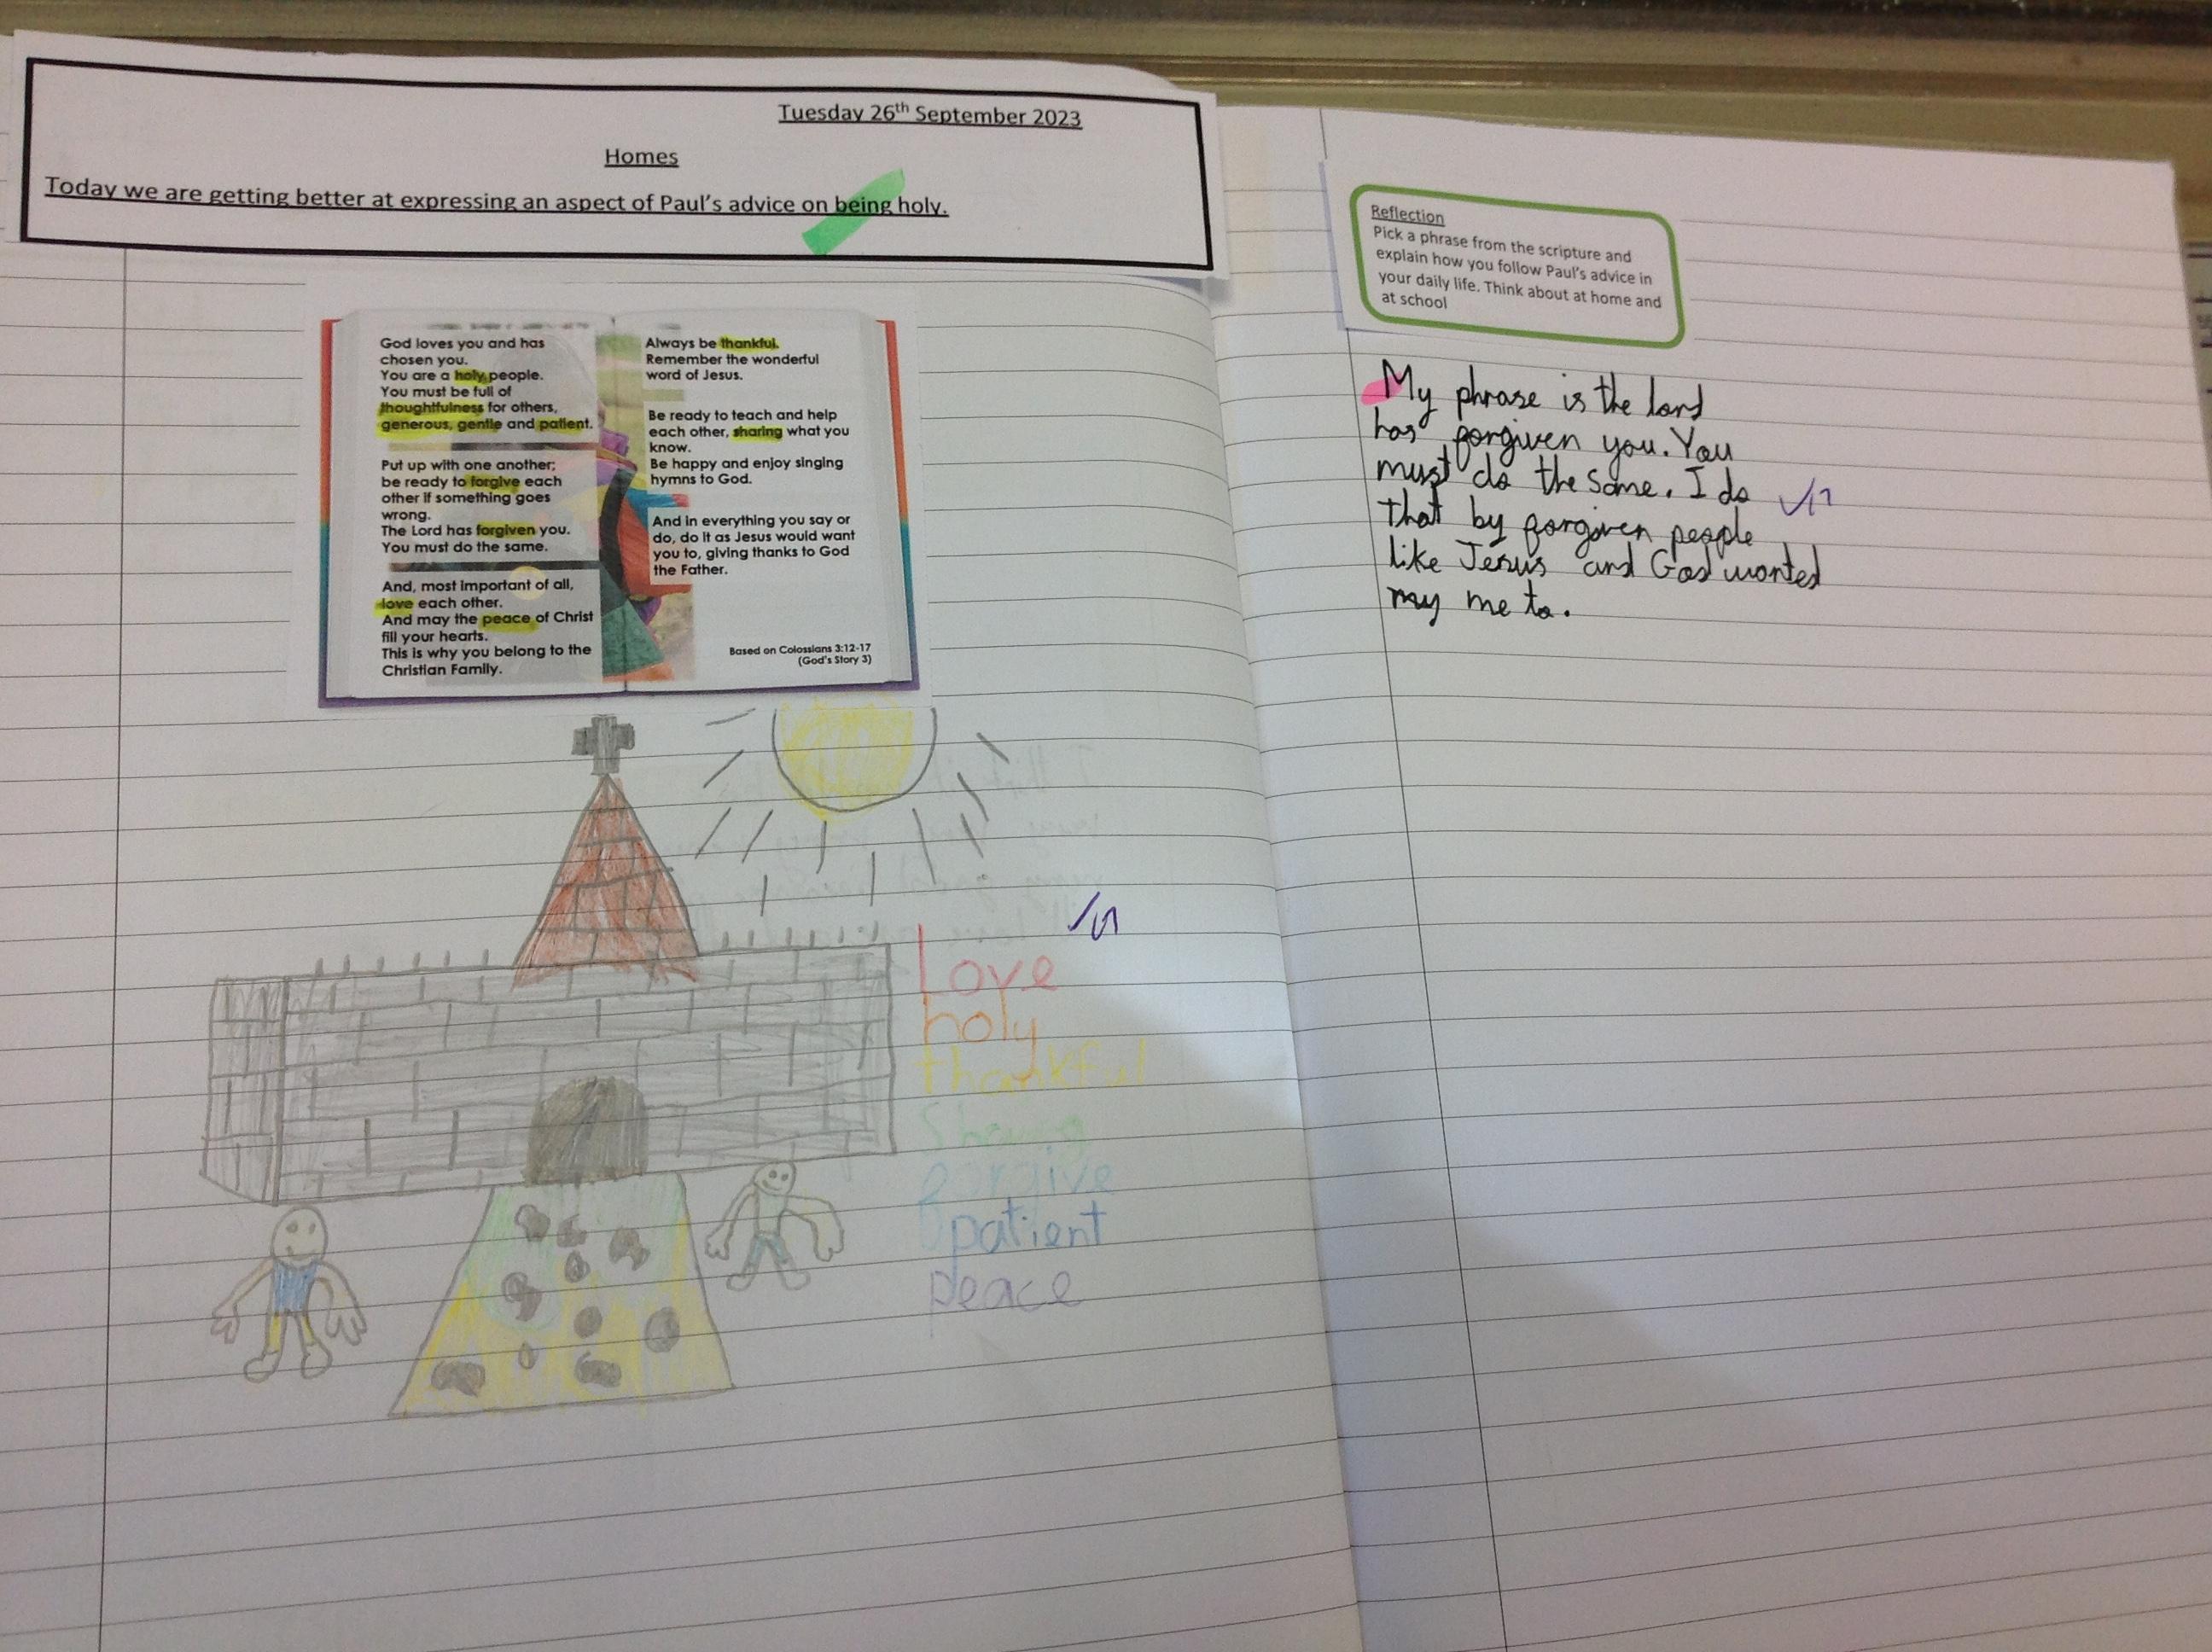 Tuesday 26th September 2023
Homes
Today we are getting better at expressing an aspect of Paul's advice on being holy.
God loves you and has
chosen you.
You are a holy people.
You must be full of
thoughtfulness for others,
generous, gentle and patient.
Put up with one another;
be ready to forgive each
other if something goes
wrong.
The Lord has forgiven you.
You must do the same.
And, most important of all,
love each other.
And may the peace of Christ
fill your hearts.
This is why you belong to the
Christian Family.
Always be thankful.
Remember the wonderful
word of Jesus.
Be ready to teach and help
each other, sharing what you
know.
Be happy and enjoy singing
hymns to God.
And in everything you say or
do, do it as Jesus would want
you to, giving thanks to God
the Father.
Based on Colossians 3:12-17
(God's Story 3)
Love
holy
thankful
Sharing
forgive
patient
peace
Reflection
Pick a phrase from the scripture and
explain how you follow Paul's advice in
your daily life. Think about at home and
at school
My phrase is the lord
has forgiven you. You
must do the same. I do
that by forgiven people
like Jesus and God wanted
my me to.